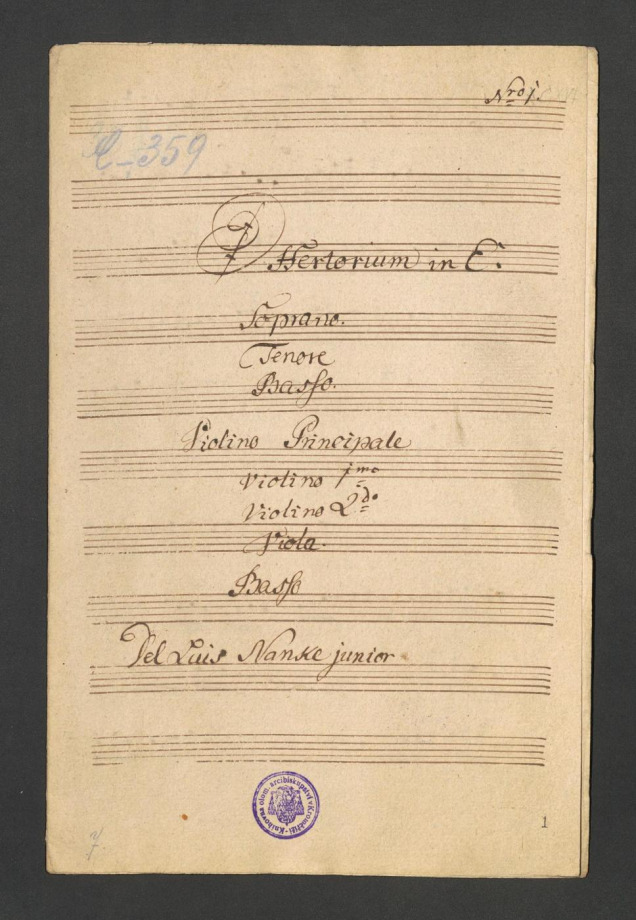 Nro 1.
C-359
Offertorium in E.
Soprano.
Tenore
Basso.
Violino Principale
Violino 1mo
Violino 2do
Viola.
Basso
Del Luis Nanske junior
Knihovna olom. arcibiskupství v Kroměříži
1